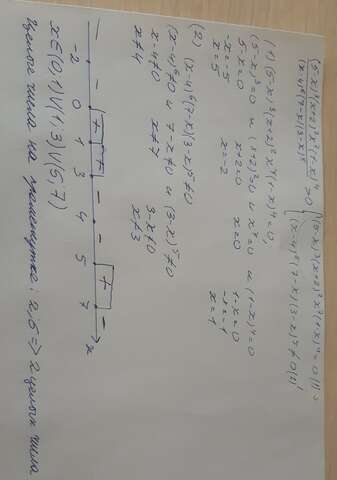 (5-x)³(x+2)²x⁷(1-x)⁴ / (x-4)⁶(7-x)(3-x)⁵ > 0
{(5-x)³(x+2)²x⁷(1-x)⁴=0 (1)
(x-4)⁶(7-x)(3-x)⁵≠0 (2)
(1) (5-x)³(x+2)²x⁷(1-x)⁴=0
(5-x)³=0 и (x+2)²=0 и x⁷=0 и (1-x)⁴=0
5-x=0 x+2=0 x=0 1-x=0
-x=-5 x=-2 -x=-1
x=5 x=1
(2) (x-4)⁶(7-x)(3-x)⁵≠0
(x-4)⁶≠0 и 7-x≠0 и (3-x)⁵≠0
x-4≠0 x≠7 3-x≠0
x≠4 x≠3
— — + + - - + -
-2 0 1 3 4 5 7 x
x∈(0,1)∨(1,3)∨(5,7)
Целые числа на промежутке: 2,6 => 2 целых числа